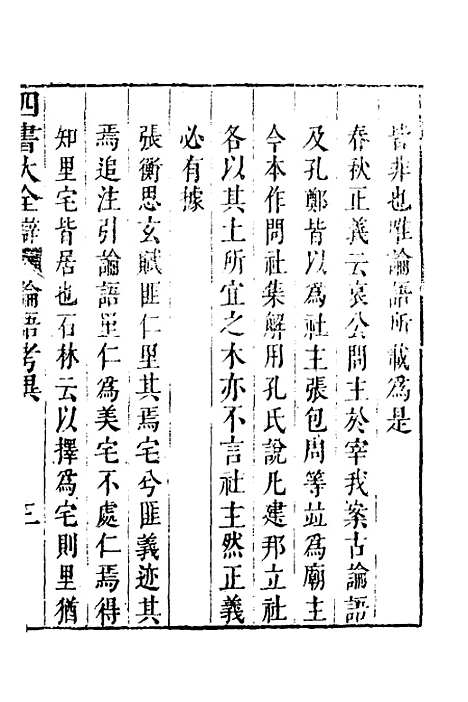 皆非也唯論語所載為是
春秋正義云哀公問主於宰我案古論語
及孔鄭皆以為社主張包周等竝為廟主
今本作問社集解用孔氏說凡建邦立社
各以其土所宜之木亦不言社主然正義
必有據
張衡思玄賦匪仁里其焉宅兮匪義迹其
焉追注引論語里仁為美宅不處仁焉得
知里宅皆居也石林云以擇為宅則里猶
四書大全 論語考異 三